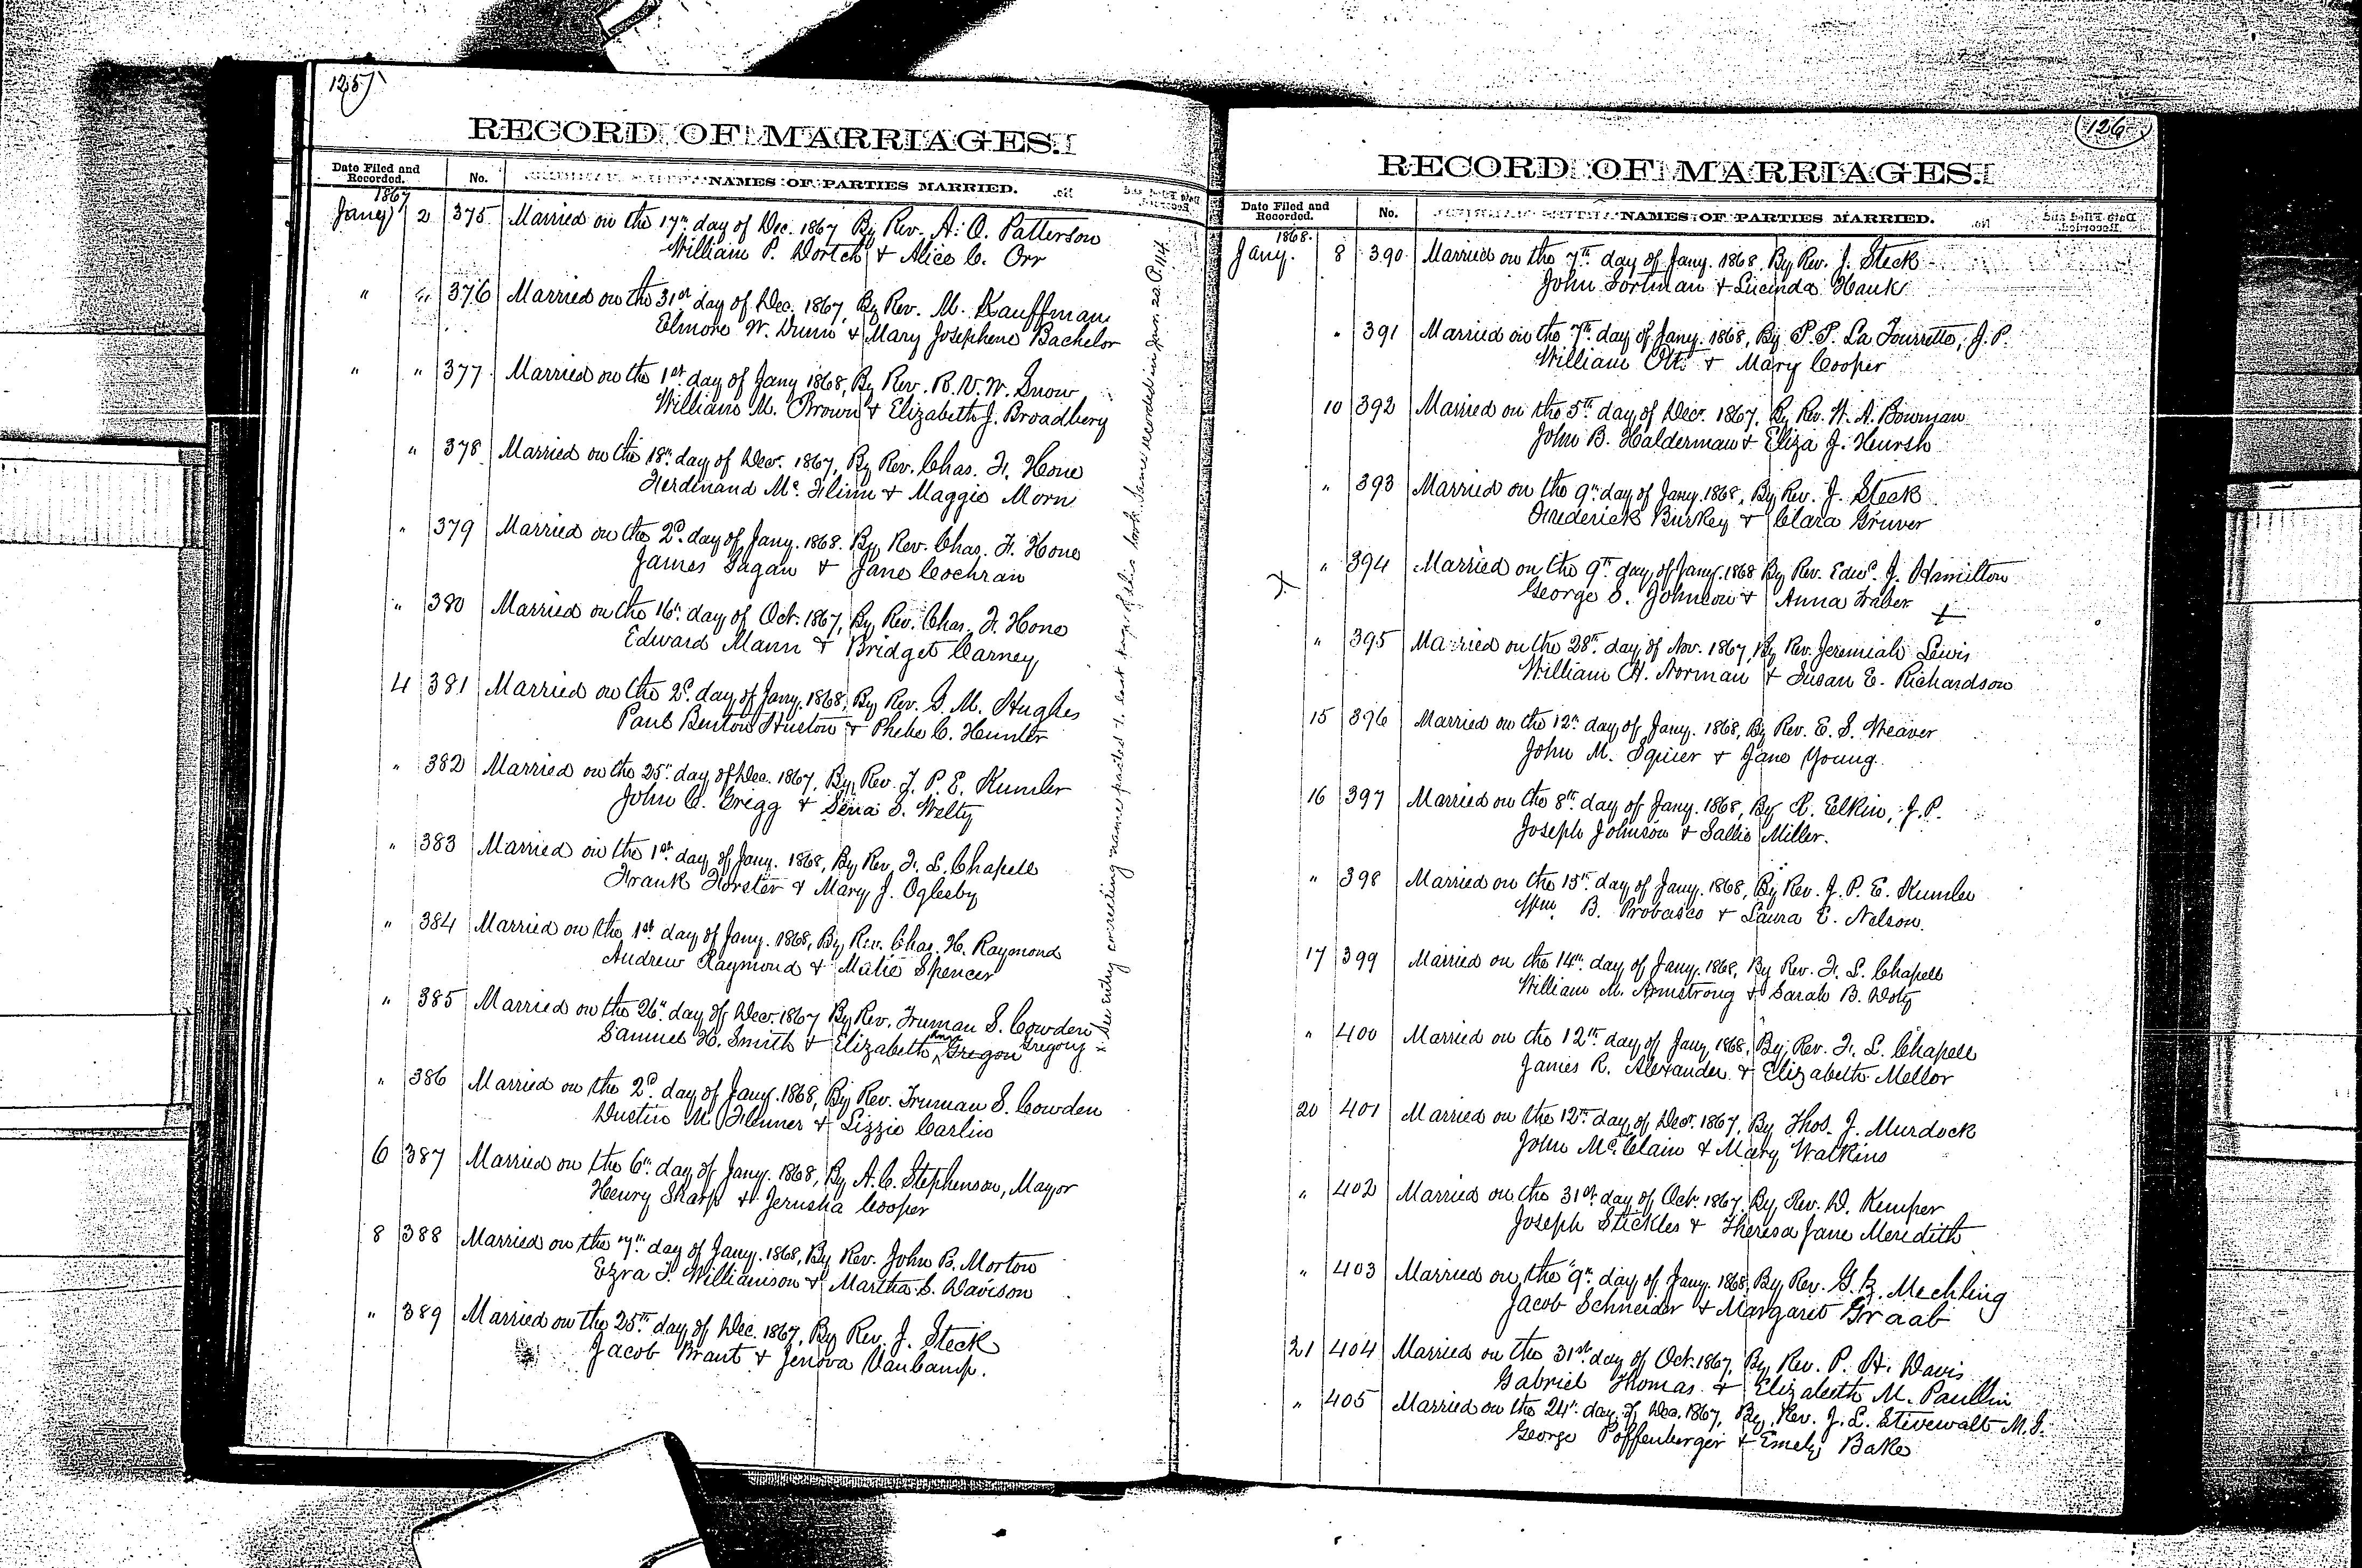 125
RECORD OF MARRIAGES.
Date Filed and Recorded.
No.
NAMES OF PARTIES MARRIED.
1867
Jany 2 375 Married on the 17th day of Dec. 1867 By Rev. A. O. Patterson
William P. Dortch & Alice C. Orr
" " 376 Married on the 31st day of Dec. 1867, By Rev. M. Kauffman
Elmore W. Dunn & Mary Josephene Bachelor
" " 377 Married on the 1st day of Jany 1868, By Rev. R. V. W. Snow
William M. Brown & Elizabeth J. Broadbery
" 378 Married on the 18th day of Decr. 1867, By Rev. Chas. F. Hone
Ferdinand Mc. Flinn & Maggie Morn
" 379 Married on the 2d day of Jany. 1868. By Rev. Chas. F. Hone
James Gagan & Jane Cochran
" 380 Married on the 16th day of Oct. 1867, By Rev. Chas. F. Hone
Edward Mann & Bridget Carney
4 381 Married on the 2d day of Jany. 1868, By Rev. G. M. Hughes
Paul Benton Huston & Phebe C. Hunter
" 382 Married on the 25th day of Dec. 1867, By Rev. J. P. E. Kumler
John C. Grigg & S. Welty
" 383 Married on the 1st day of Jany. 1868, By Rev. F. L. Chapell
Frank Forster & Mary J. Oglesby
" 384 Married on the 1st day of Jany. 1868, By Rev. Chas. H. Raymond
Andrew Raymond & Matie Spencer
" 385 Married on the 26th day of Decr. 1867 By Rev. Truman S. Cowden
Samuel H. Smith & Elizabeth Ann Gregon Gregory x
" 386 Married on the 2d day of Jany. 1868, By Rev. Truman S. Cowden
Dustin M. Flenner & Lizzie Carlin
6 387 Married on the 6th day of Jany. 1868, By A. C. Stephenson, Mayor
Henry Sharp & Jerusha Cooper
8 388 Married on the 7th day of Jany. 1868, By Rev. John B. Morton
Ezra T. Williamson & Martha S. Davison
" 389 Married on the 25th day of Dec. 1867, By Rev. J. Steck
Jacob Brant & Jenova VanCamp.
x See entry correcting names of parties to last marriage of this book same recorded in Jour. 20. P. 114
126
RECORD OF MARRIAGES.
Date Filed and Recorded.
No.
NAMES OF PARTIES MARRIED.
1868.
Jany. 8 390 Married on the 7th day of Jany. 1868, By Rev. J. Steck
John Fortman & Lucinda Hauk
" 391 Married on the 7th day of Jany. 1868, By P. P. La Tourrette, J. P.
William Ott & Mary Cooper
10 392 Married on the 5th day of Decr. 1867, By Rev. H. A. Bowman
John B. Halderman & Eliza J. Hursh
" 393 Married on the 9th day of Jany. 1868, By Rev. J. Steck
Frederick Burkey & Clara Gruver
x " 394 Married on the 9th day of Jany. 1868 By Rev. Edwd. J. Hamilton
George S. Johnson & Anna Traber +
" 395 Married on the 28th day of Nov. 1867, By Rev. Jeremiah Lewis
William H. Norman & Susan E. Richardson
15 396 Married on the 12th day of Jany. 1868, By Rev. E. S. Weaver
John M. Squier & Jane Young
16 397 Married on the 8th day of Jany. 1868, By R. Elkin, J. P.
Joseph Johnson & Sallie Miller.
" 398 Married on the 15th day of Jany. 1868, By Rev. J. P. E. Kumler
Wm. B. Probasco & Laura E. Nelson.
17 399 Married on the 14th day of Jany. 1868, By Rev. F. L. Chapell
William M. Armstrong & Sarah B. Doty
" 400 Married on the 12th day of Jany 1868, By Rev. F. L. Chapell
James R. Alexander & Elizabeth Mellor
20 401 Married on the 12th day of Decr. 1867, By Thos. J. Murdock
John McClain & Mary Watkins
" 402 Married on the 31st day of Oct. 1867. By Rev. D. Kemper
Joseph Stickles & Theresa Jane Meredith
" 403 Married on the 9th day of Jany. 1868, By Rev. G. Z. Mechling
Jacob Schneider & Margaret Graab
21 404 Married on the 31st day of Oct. 1867, By Rev. P. H. Davis
Gabriel Thomas & Elizabeth M. Paullin
" 405 Married on the 24th day of Dec. 1867, By Rev. J. L. Stirewalt M. G.
George Poffenberger & Emely Bake